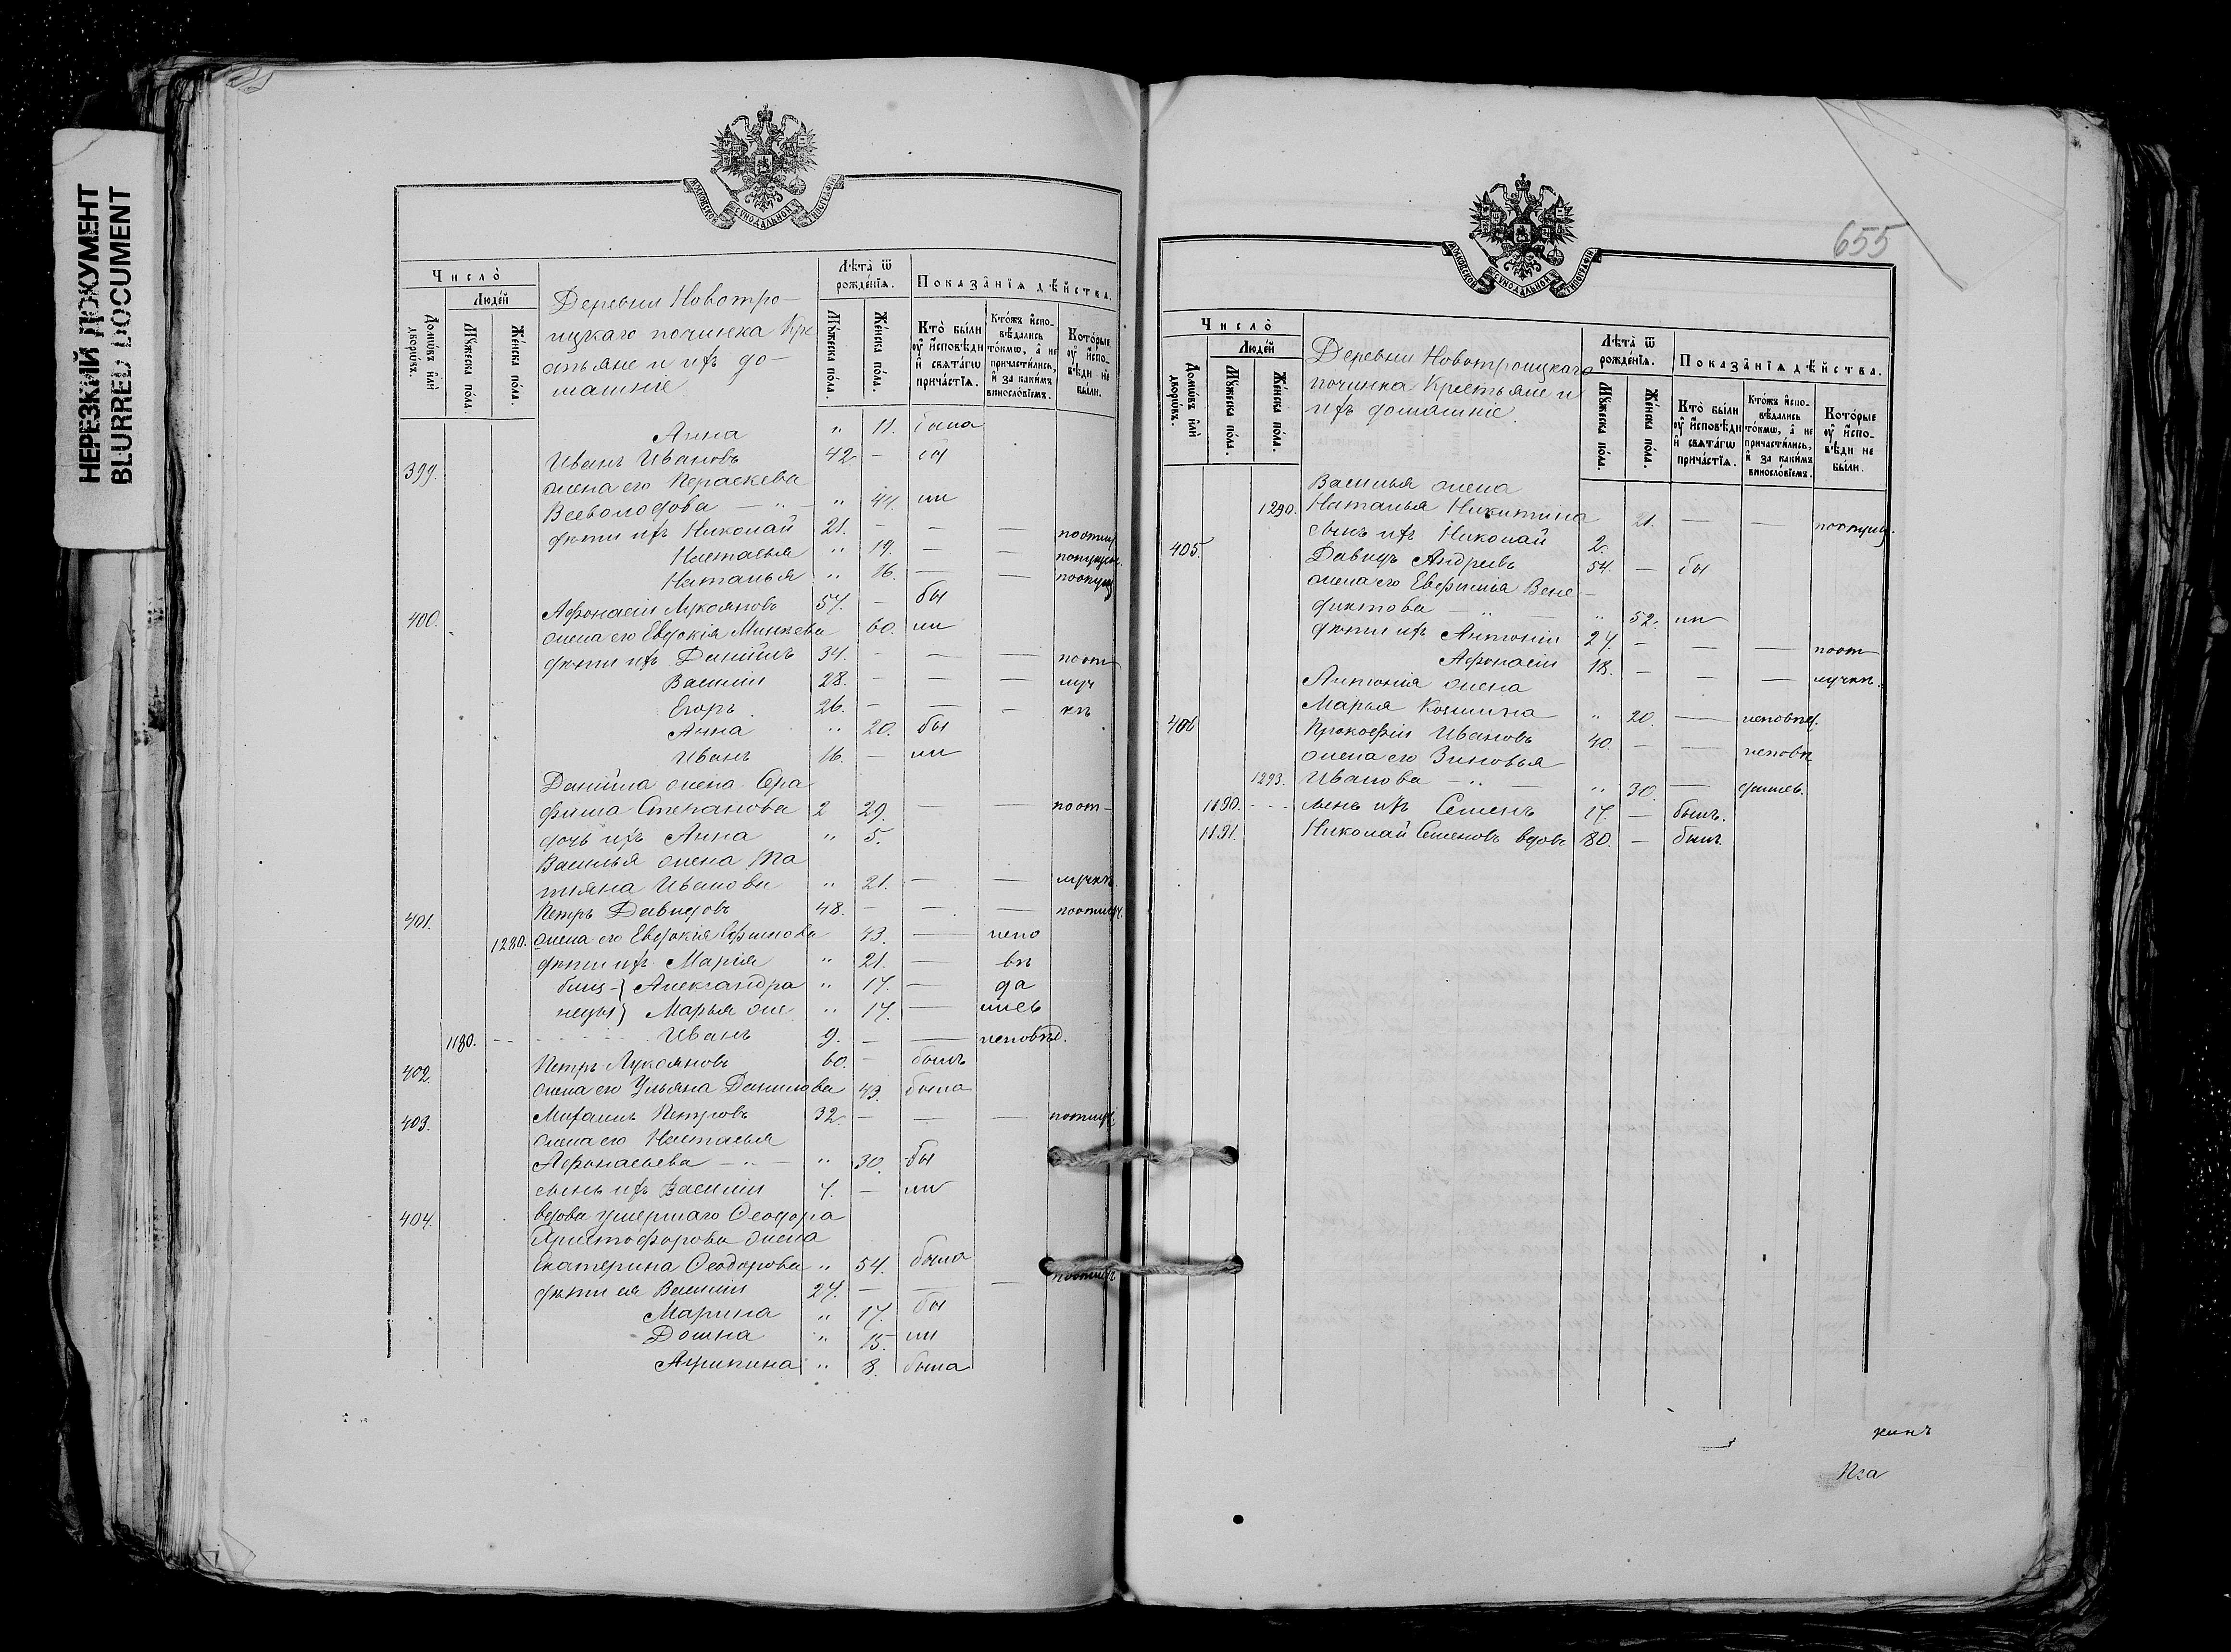 НЕРЕЗКИЙ ДОКУМЕНТ
BLURRED DOCUMENT
МОСКОВСКОЙ СѴНОДАЛЬНОЙ ТИПОГРАФІИ
Число̀
Людей
Домѡвъ или дворѡвъ.
Мꙋжеска пола.
Женска пола.
Деревни Новотро-
ицкаго починка Кре
стьяне и ихъ до-
машніе
Лѣта ѿ рожденія.
Мꙋжеска пола.
Женска пола.
Показанія дѣйства.
Кто были ꙋ исповѣди и свѧтагѡ причастїѧ.
Ктожъ исповѣдались токмѡ, а не причастились, и за какимъ винословїемъ.
Которые ꙋ исповѣди не были.
Анна " 11. была
399. Иванъ Ивановъ 42 — бы
жена его Параскева
Всеволодова — " — " 44. ли
дѣти ихъ Николай 21. — — — поотлуч
Настасья " 19. — — поопущ.
Наталья " 16. — — поопущ
400. Афонасій Лукояновъ 57. — бы
жена его Евдокія Минѣева 60. ли
дѣти ихъ Даніилъ 34. — — — поот
Василій 28. — — — луч
Егоръ 26. — — — кѣ
Анна " 20. бы
Иванъ 16. — ли
Даніила жена Сера
фима Степанова 2 29. — — поот-
дочь ихъ Анна " 5.
Василья жена Та
тіяна Иванова " 21. — — лучкѣ.
401. Петръ Давидовъ 48. — — — поотлуч.
1280. жена его Евдокія Ефимова 43. — испо
дѣти ихъ Марія " 21. — вѣ
близ-} Александра " 17. — да
нецы} Марья же " 17. — лись
1180. Иванъ 9. — — исповѣд.
402. Петръ Лукояновъ 60. — былъ
жена его Ульяна Данилова 49. была
403. Михаилъ Петровъ 32. — — — поотлуч
жена его Настасья
Афонасьева — " — " 30. бы
сынъ ихъ Василій 7. — ли
404. вдова умершаго Ѳеодора
Христофорова жена
Екатерина Ѳеодорова " 54. была
дѣти ея Василій 27. — — — поотлуч
Марина " 17. бы
Домна " 15. ли
Агрипина " 8. была
655
МОСКОВСКОЙ СѴНОДАЛЬНОЙ ТИПОГРАФІИ
Число̀
Людей
Домѡвъ или дворѡвъ.
Мꙋжеска пола.
Женска пола.
Деревни Новотроицкаго
починка Крестьяне и
ихъ домашніе.
Лѣта ѿ рожденія.
Мꙋжеска пола.
Женска пола.
Показанія дѣйства.
Кто были ꙋ исповѣди и свѧтагѡ причастїѧ.
Ктожъ исповѣдались токмѡ, а не причастились, и за какимъ винословїемъ.
Которые ꙋ исповѣди не были.
Василья жена
1290. Наталья Никитина 21. — — поопущ.
сынъ ихъ Николай 2.
405. Давидъ Андреевъ 54. — бы
жена его Евфимія Вене-
диктова — " " 52. ли
дѣти ихъ Антоній 27. — — — поот
Афонасій 18. — — — лучкѣ.
Антонія жена
Марья Козмина " 20. — исповѣд.
406 Прокофій Ивановъ 40. — — исповѣ
жена его Зиновья
1293. Иванова — " — " 30. — дились.
1190. сынъ ихъ Семенъ 17. — былъ.
1191. Николай Семеновъ вдовъ 80. — былъ